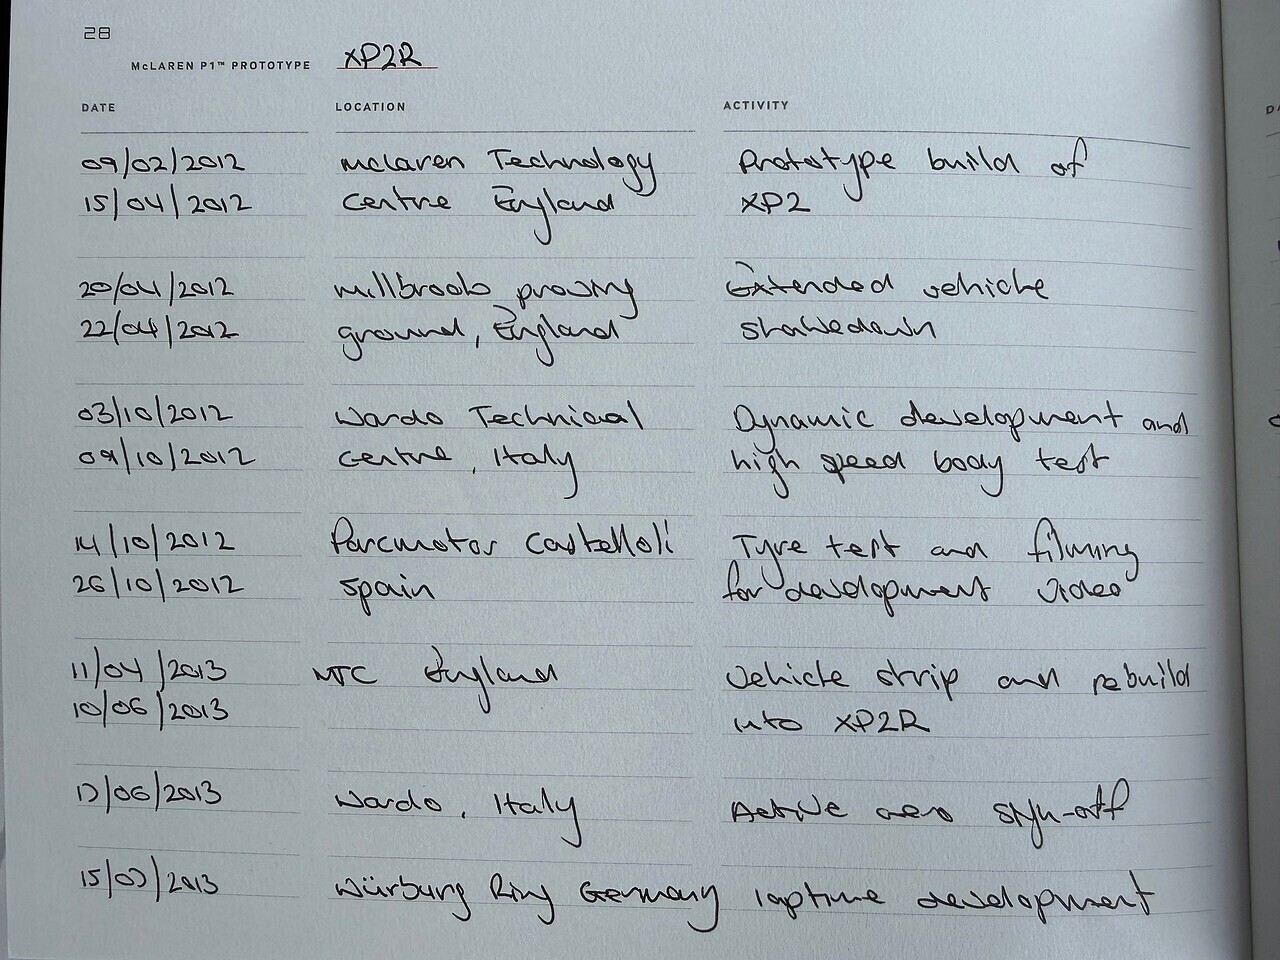 28
McLAREN P1™ PROTOTYPE XP2R
DATE LOCATION ACTIVITY
09/02/2012 mclaren Technology Prototype build of
15/04/2012 Centre England XP2
20/04/2012 millbrook proving Extended vehicle
22/04/2012 ground, England shakedown
03/10/2012 Nardo Technical Dynamic development and
09/10/2012 Centre, Italy high speed body test
14/10/2012 Parcmotor Castelloli Tyre test and filming
26/10/2012 Spain for development video
11/04/2013 MTC England Vehicle strip and rebuild
10/06/2013 into XP2R
/06/2013 Nardo, Italy Active aero sign-off
15/07/2013 Nürburg Ring Germany laptime development